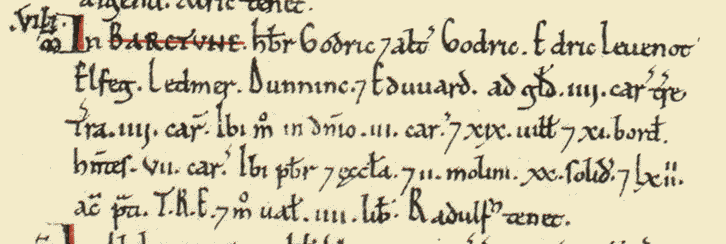 argent. Aluric tenet.
.VIII. In BARCTUNE. hb̃r Godric ⁊ alt̃ Godric. Edric Leuenot
m̃ Elfeg. Ledmer. Dunninc. ⁊ Eduuard. ad gld̃. IIII. car̃ tr̃e
Tr̃a. IIII. car̃. Ibi m̃ in dñio. III. car̃. ⁊ XIX. uill̃ ⁊ XI. bord̃.
hñtes. VII. car̃. Ibi pb̃r ⁊ ęccl̃a. ⁊ II. molini. XX. solid̃. ⁊ LXII.
ac̃ p̃ti. T.R.E. ⁊ m̃ ual̃. IIII. lib̃. Radulf⁹ tenet.